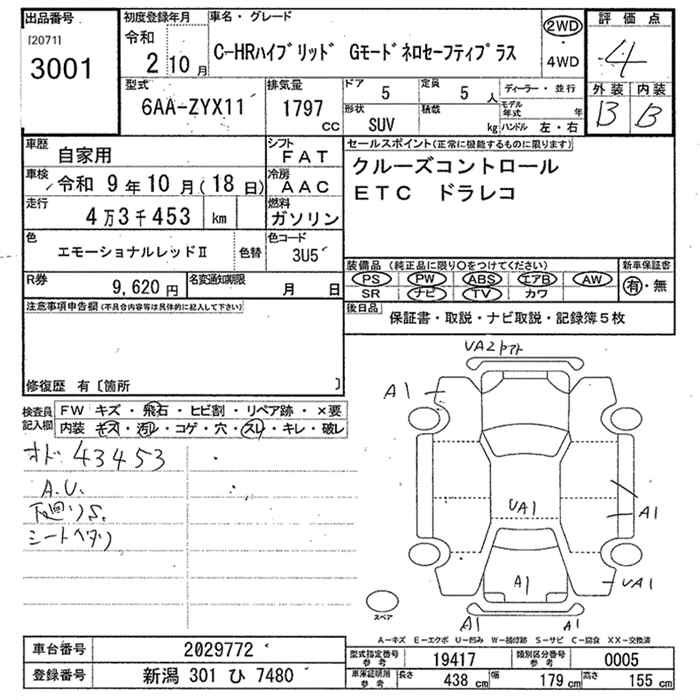 出品番号
[2071]
3001
初度登録年月
令和
2 10 月
車名・グレード
C-HRハイブリッド Gモードネロセーフティプラス
2WD
・
4WD
評価点
4
外装 内装
B B
型式
6AA-ZYX11
排気量
1797
cc
ドア
5
定員
5 人
形状
SUV
積載
kg
ディーラー・並行
モデル年式 年
ハンドル 左・右
車歴
自家用
シフト
FAT
車検
令和 9年10月(18日)
冷房
AAC
走行
4万3千453 km
燃料
ガソリン
色
エモーショナルレッドⅡ
色替
色コード
3U5
R券
9,620 円
名変通知期限
月 日
セールスポイント(正常に機能するものに限ります)
クルーズコントロール
ETC ドラレコ
装備品 (純正品に限り○をつけてください)
PS PW ABS エアB AW
SR ナビ TV カワ
新車保証書
有・無
後日品
保証書・取説・ナビ取説・記録簿5枚
注意事項申告欄(不具合内容等は具体的に記入して下さい)
修復歴 有〔箇所 〕
検査員記入欄
FW キズ・飛石・ヒビ割・リペア跡・×要
内装 キズ・汚レ・コゲ・穴・スレ・キレ・破レ
オド 43453
A.U.
下廻りS.
シートヘタリ
UA2
A1
UA1
A1
A1
UA1
A1 A1
スペア
A-キズ E-エクボ U-凹み W-補修跡 S-サビ C-腐食 XX-交換済
車台番号
2029772
登録番号
新潟 301 ひ 7480
型式指定番号
参考
19417
類別区分番号
参考
0005
車庫証明用
参考
長さ 438 cm 幅 179 cm 高さ 155 cm